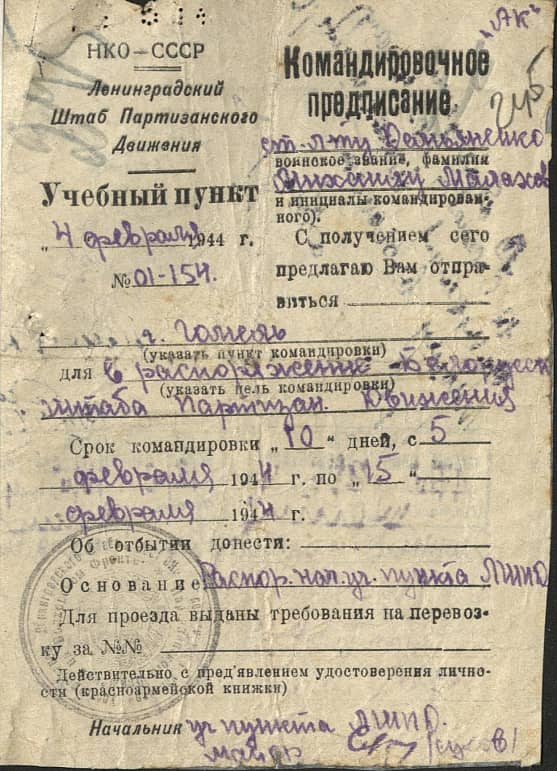 "АК"
НКО—СССР
Ленинградский
Штаб Партизанского
Движения
Учебный пункт
„4 февраля 1944 г.
№ 01-154.
Командировочное
предписание
245
ст. л-ту Демьяненко
воинское звание, фамилия
Михаилу Малахов
и инициалы командирован-
ного).
С получением сего
предлагаю Вам отпра-
виться
г. Гомель
(указать пункт командировки)
для в распоряжение Белорусск
(указать цель командировки)
штаба партизан. движения
Срок командировки „10“ дней, с 5
февраля 1944 г. по „15“
февраля 1944 г.
Об отбытии донести:
Основание Распор. нач. уч. пункта ЛШПД
Для проезда выданы требования на перевоз-
ку за №№
Действительно с пред'явлением удостоверения лично-
сти (красноармейской книжки)
Начальник уч пункта ЛШПД.
майор